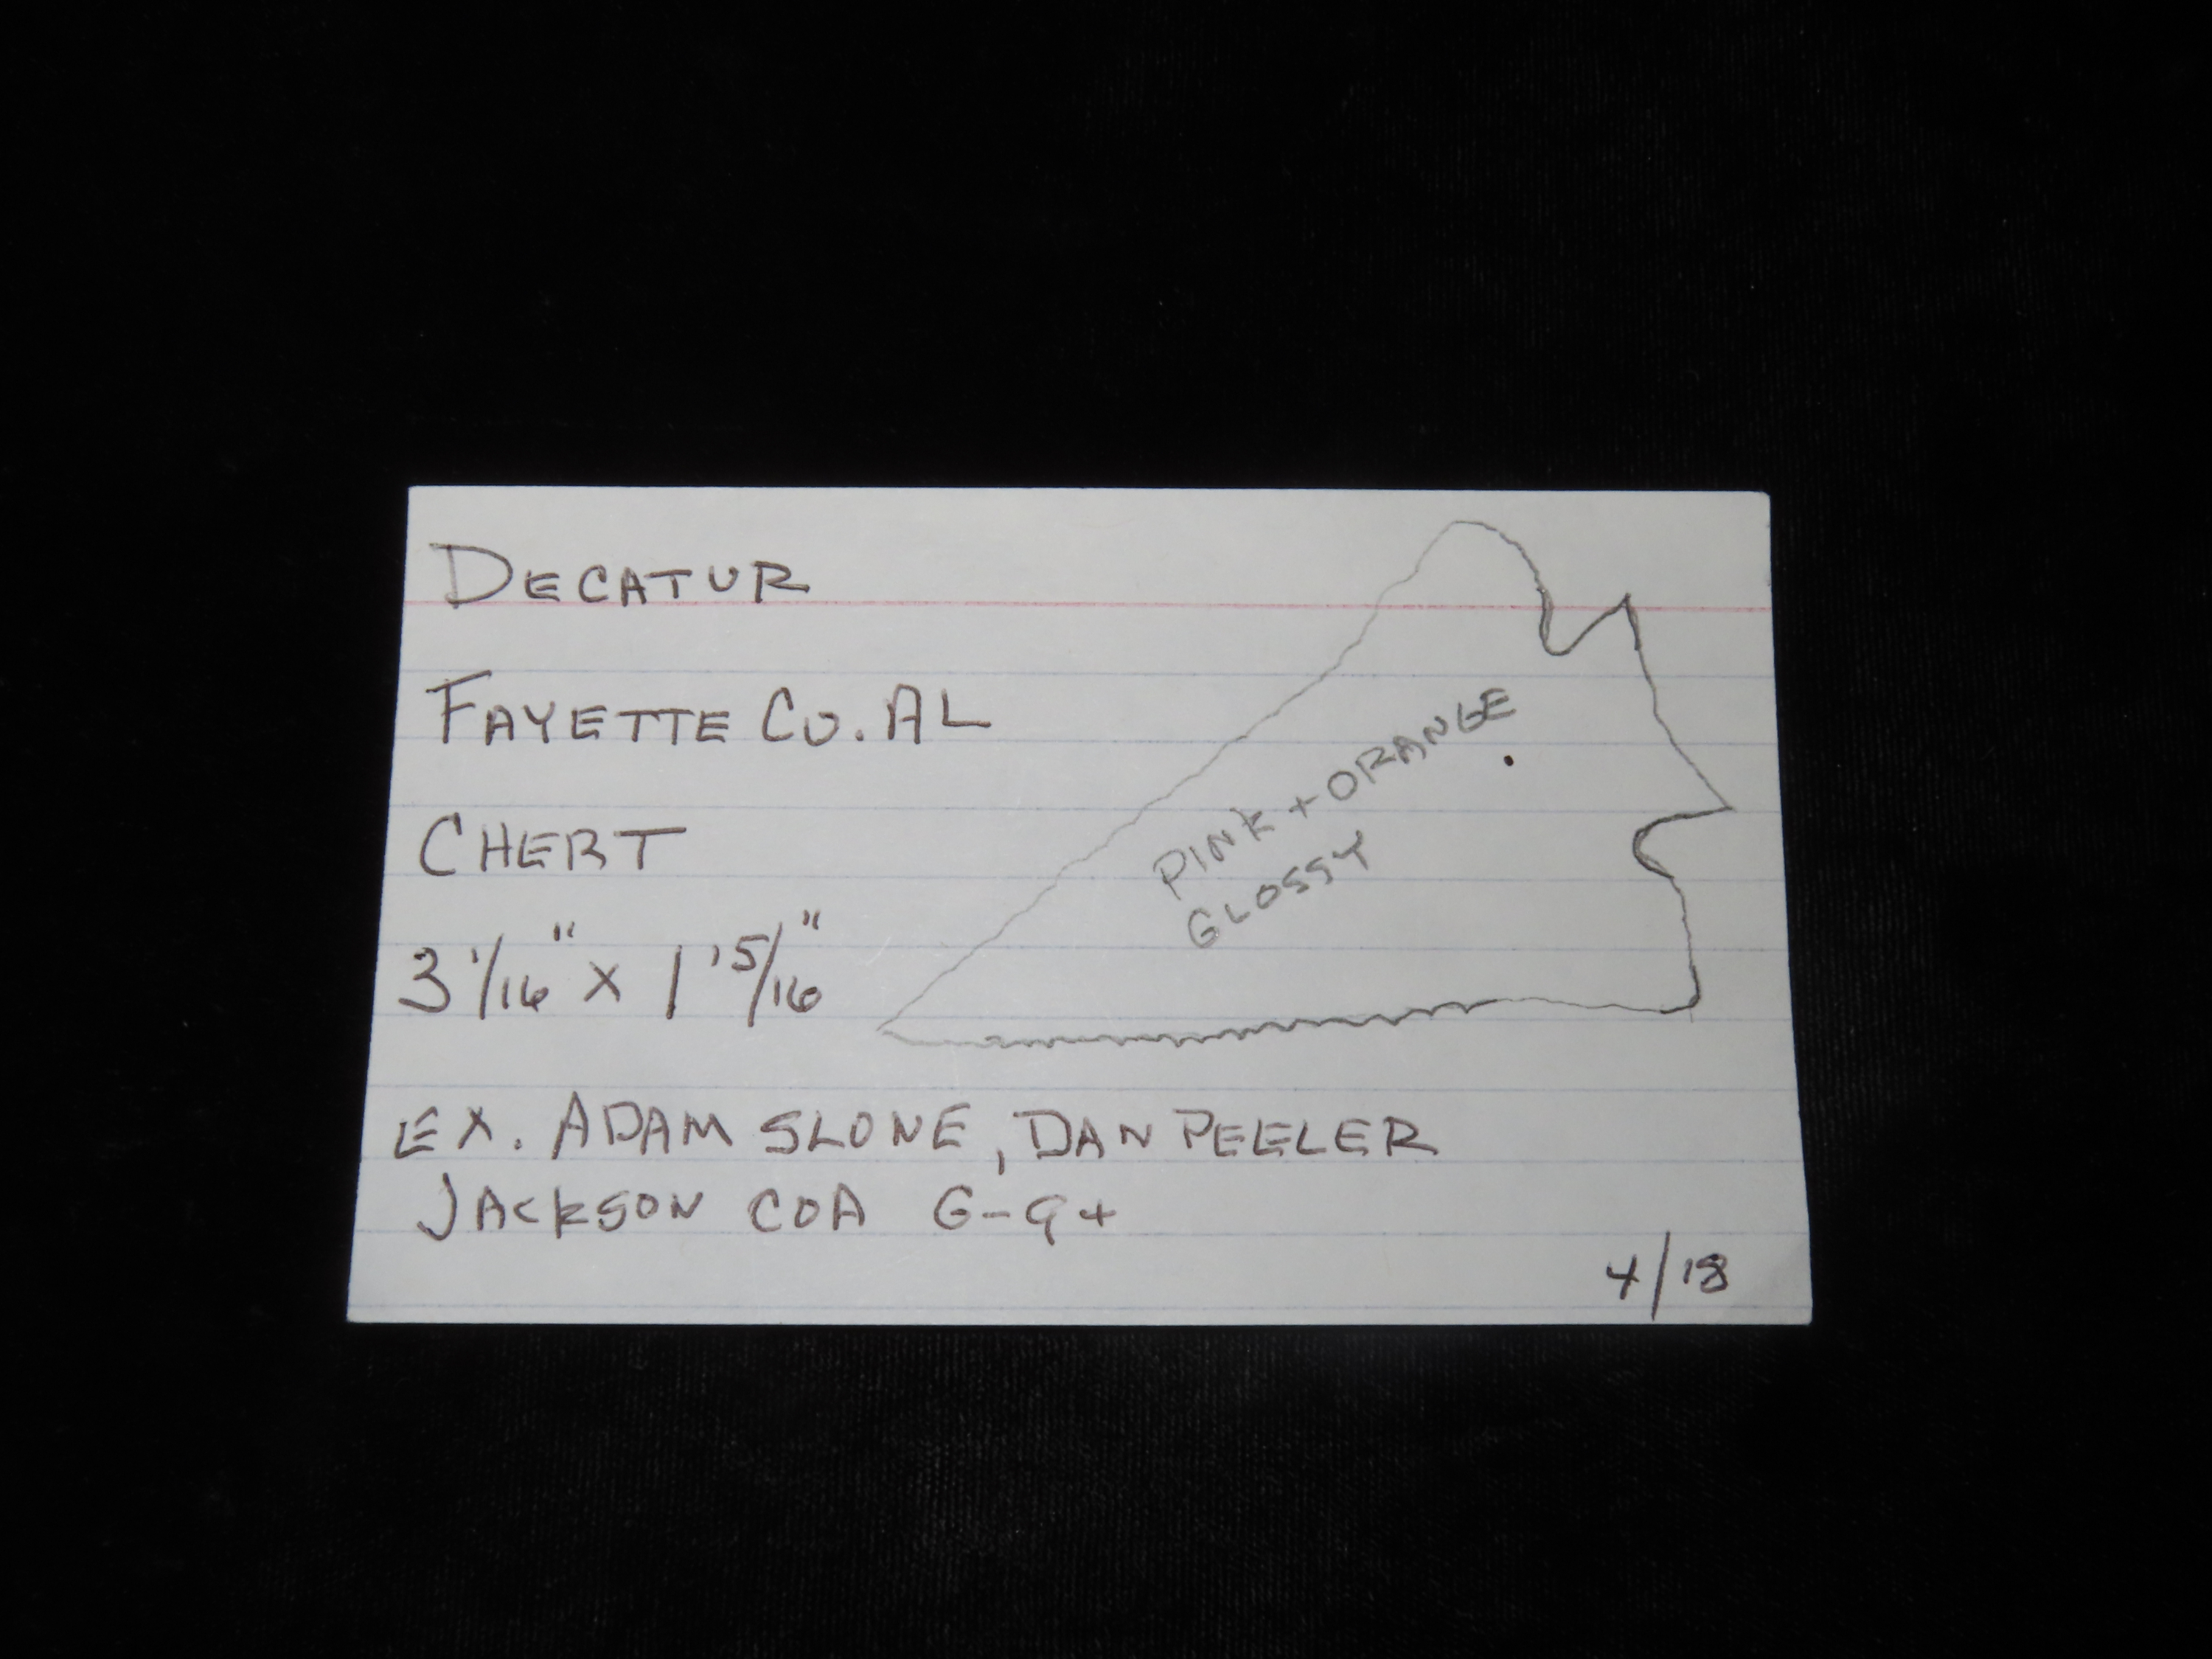 DECATUR
FAYETTE CO. AL
CHERT
3 1/16" X 1 15/16"
PINK + ORANGE
GLOSSY
EX. ADAM SLONE, DAN PEELER
JACKSON COA G-9+
4/18